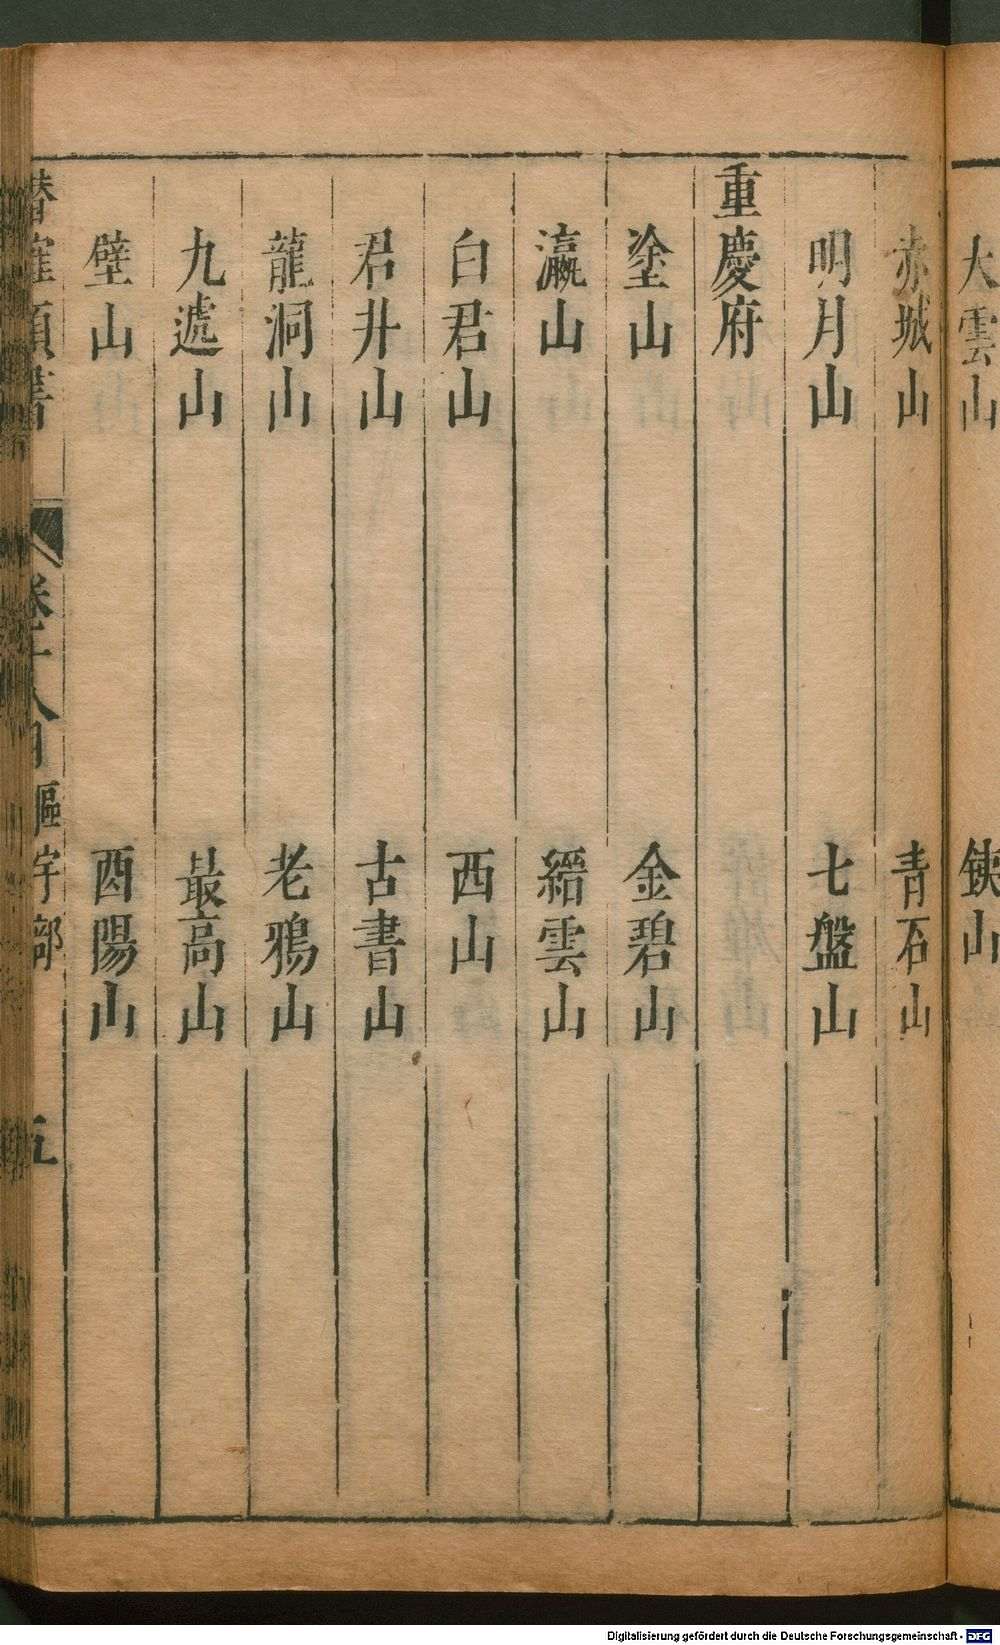 大雲山 鐵山
赤城山 青石山
明月山 七盤山
重慶府
塗山 金碧山
瀛山 縉雲山
白君山 西山
君井山 古書山
龍洞山 老鴉山
九遞山 最高山
壁山 酉陽山
卷 宇部 五
Digitalisierung gefördert durch die Deutsche Forschungsgemeinschaft - DFG